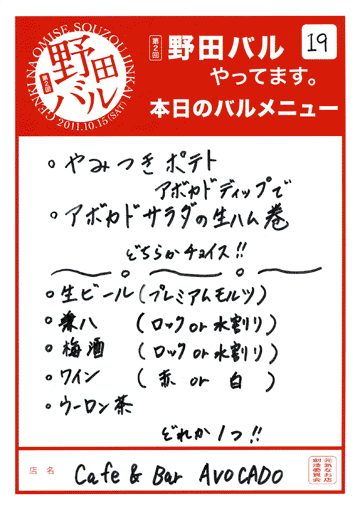 第2回
野田バル
GENKI NA OMISE SOUZOU IINKAI
2011.10.15(SAT)
第2回 野田バル
やってます。
19
本日のバルメニュー
○やみつきポテト
アボカドディップで
○アボカドサラダの生ハム巻
どちらかチョイス!!
○生ビール(プレミアムモルツ)
○兼八 (ロック or 水割り)
○梅酒 (ロック or 水割り)
○ワイン (赤 or 白)
○ウーロン茶
どれか1つ!!
店名 Cafe & Bar AVOCADO
元気なお店
創造委員会